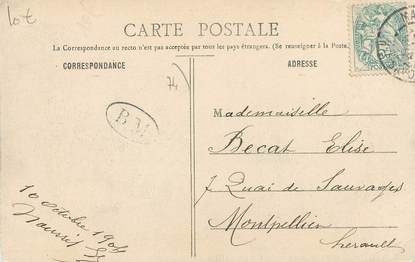 lot
CARTE POSTALE
La Correspondance au recto n'est pas acceptée par tous les pays étrangers. (Se renseigner à la Poste.)
CORRESPONDANCE
ADRESSE
74
B M
Mademoiselle
Becat Elise
7 Quai de Sauvages
Montpellier
herault
10 Octobre 1906